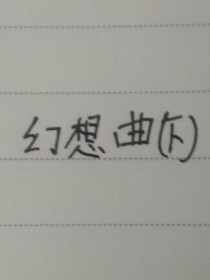 幻想曲(下)